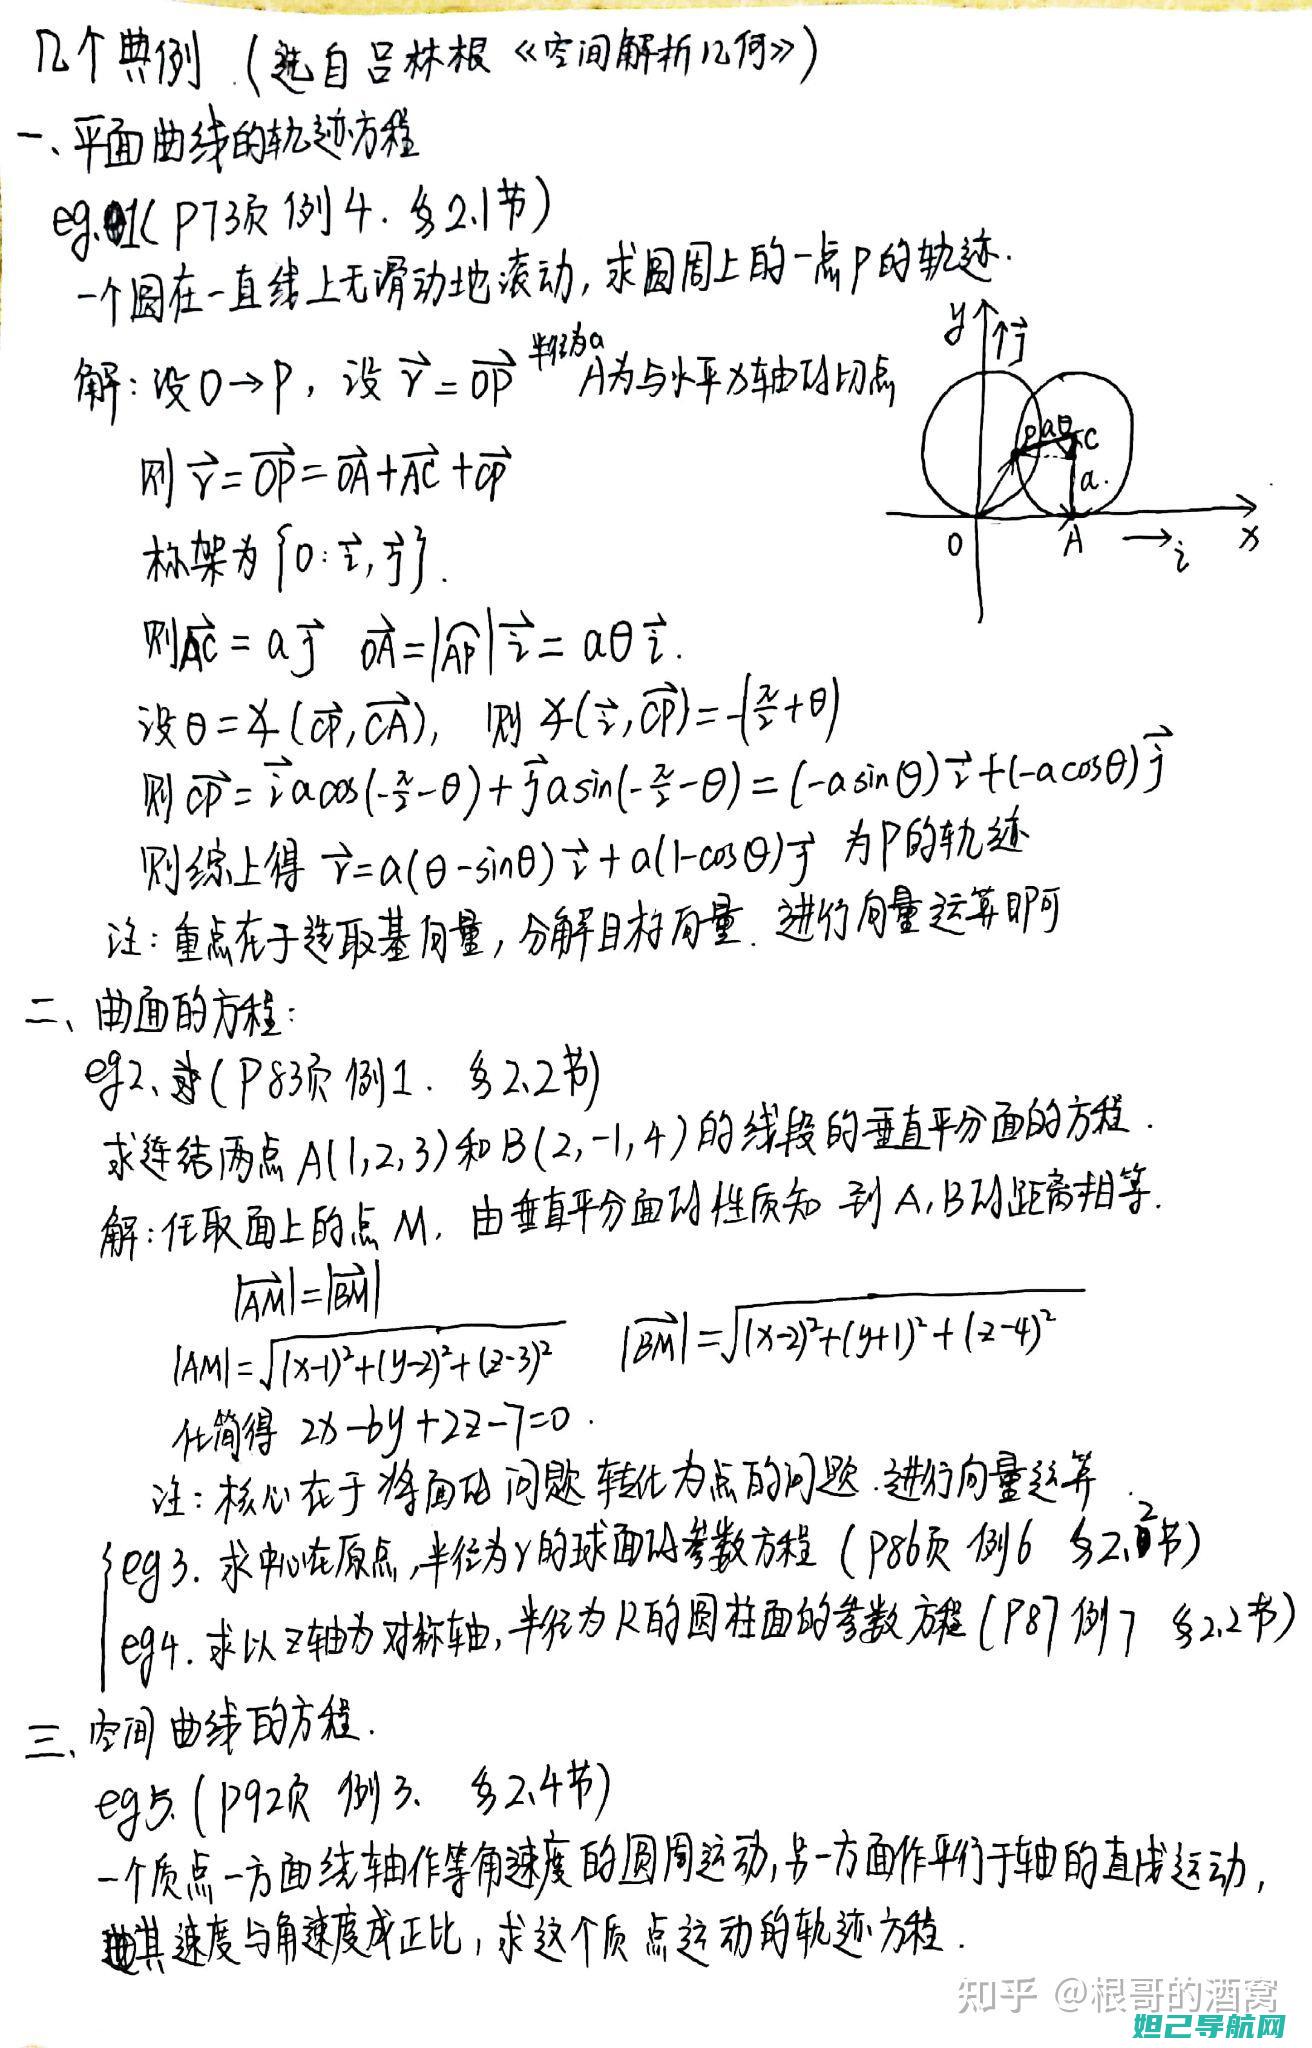 几个典例.(选自吕林根《空间解析几何》)
一、平面曲线的轨迹方程
eg.01(P73页 例4. §2.1节)
一个圆在一直线上无滑动地滚动,求圆周上的一点P的轨迹.
半径为a
解:设O→P,设 r⃗=OP⃗ A为与水平x轴的切点
则 r⃗=OP⃗=OA⃗+AC⃗+CP⃗
标架为{O:i⃗,j⃗}.
则AC⃗=aj⃗ OA⃗=|AP⌒|i⃗=aθi⃗.
设θ=∡(CP⃗,CA⃗), 则∡(i⃗,CP⃗)=-(π/2+θ)
则CP⃗=i⃗acos(-π/2-θ)+j⃗asin(-π/2-θ)=(-asinθ)i⃗+(-acosθ)j⃗
则综上得 r⃗=a(θ-sinθ)i⃗+a(1-cosθ)j⃗ 为P的轨迹
注:重点在于选取基向量,分解目标向量.进行向量运算即可
y
j⃗
P
aθ
C
a.
O
A
i
x
二、曲面的方程:
eg2、(P83页 例1. §2.2节)
求连结两点A(1,2,3)和B(2,-1,4)的线段的垂直平分面的方程.
解:任取面上的点M.由垂直平分面的性质知 到A,B的距离相等.
|AM⃗|=|BM⃗|
|AM|=√(x-1)²+(y-2)²+(z-3)² |BM⃗|=√(x-2)²+(y+1)²+(z-4)²
化简得 2x-6y+2z-7=0.
注:核心在于将面的问题转化为点的问题.进行向量运算.
eg3.求中心在原点,半径为r的球面的参数方程(P86页 例6 §2.2节)
eg4.求以z轴为对称轴,半径为R的圆柱面的参数方程(P87例7 §2.2节)
三、空间曲线的方程.
eg5.(P92页 例3、 §2.4节)
一个质点一方面绕轴作等角速度的圆周运动,另一方面作平行于轴的直线运动,
其速度与角速度成正比,求这个质点运动的轨迹方程.
知乎 @根哥的酒窝
妲己导航网